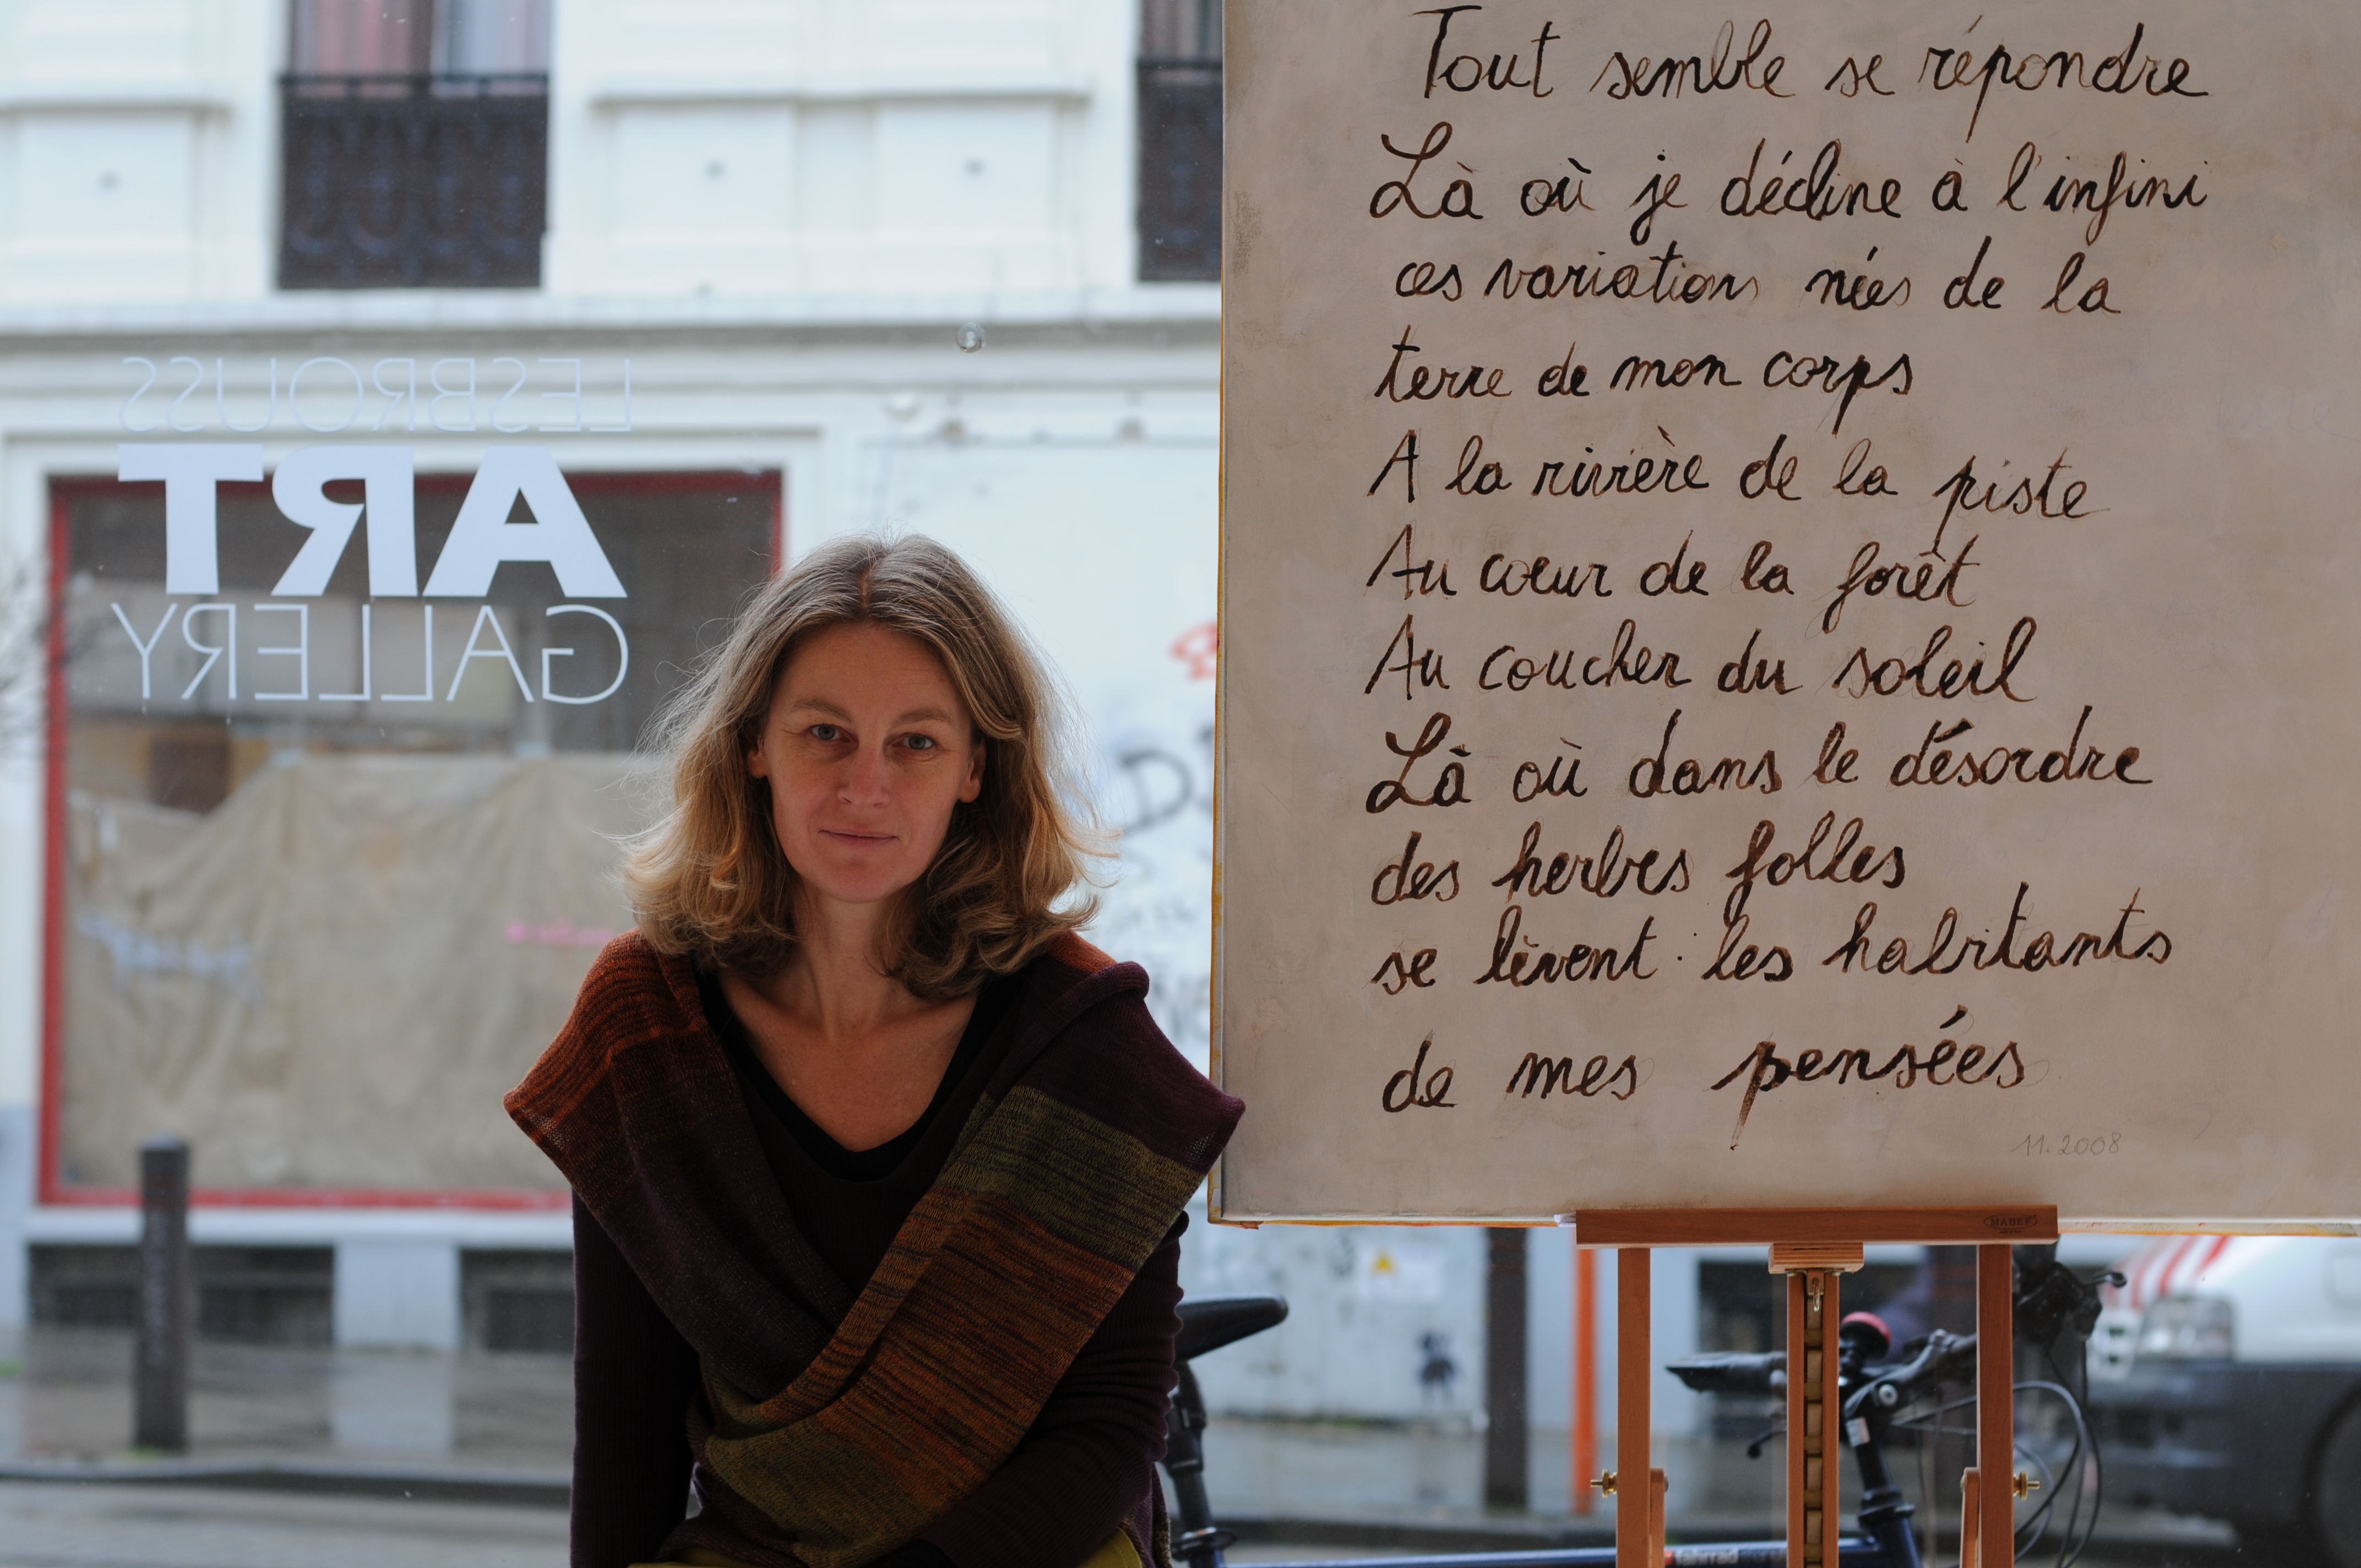 LESBROUSS
ART
GALLERY
Tout semble se répondre
Là où je décline à l'infini
ces variations nées de la
terre de mon corps
A la rivière de la piste
Au coeur de la forêt
Au coucher du soleil
Là où dans le désordre
des herbes folles
se lèvent les habitants
de mes pensées
11.2008
MABEF
fahrrad